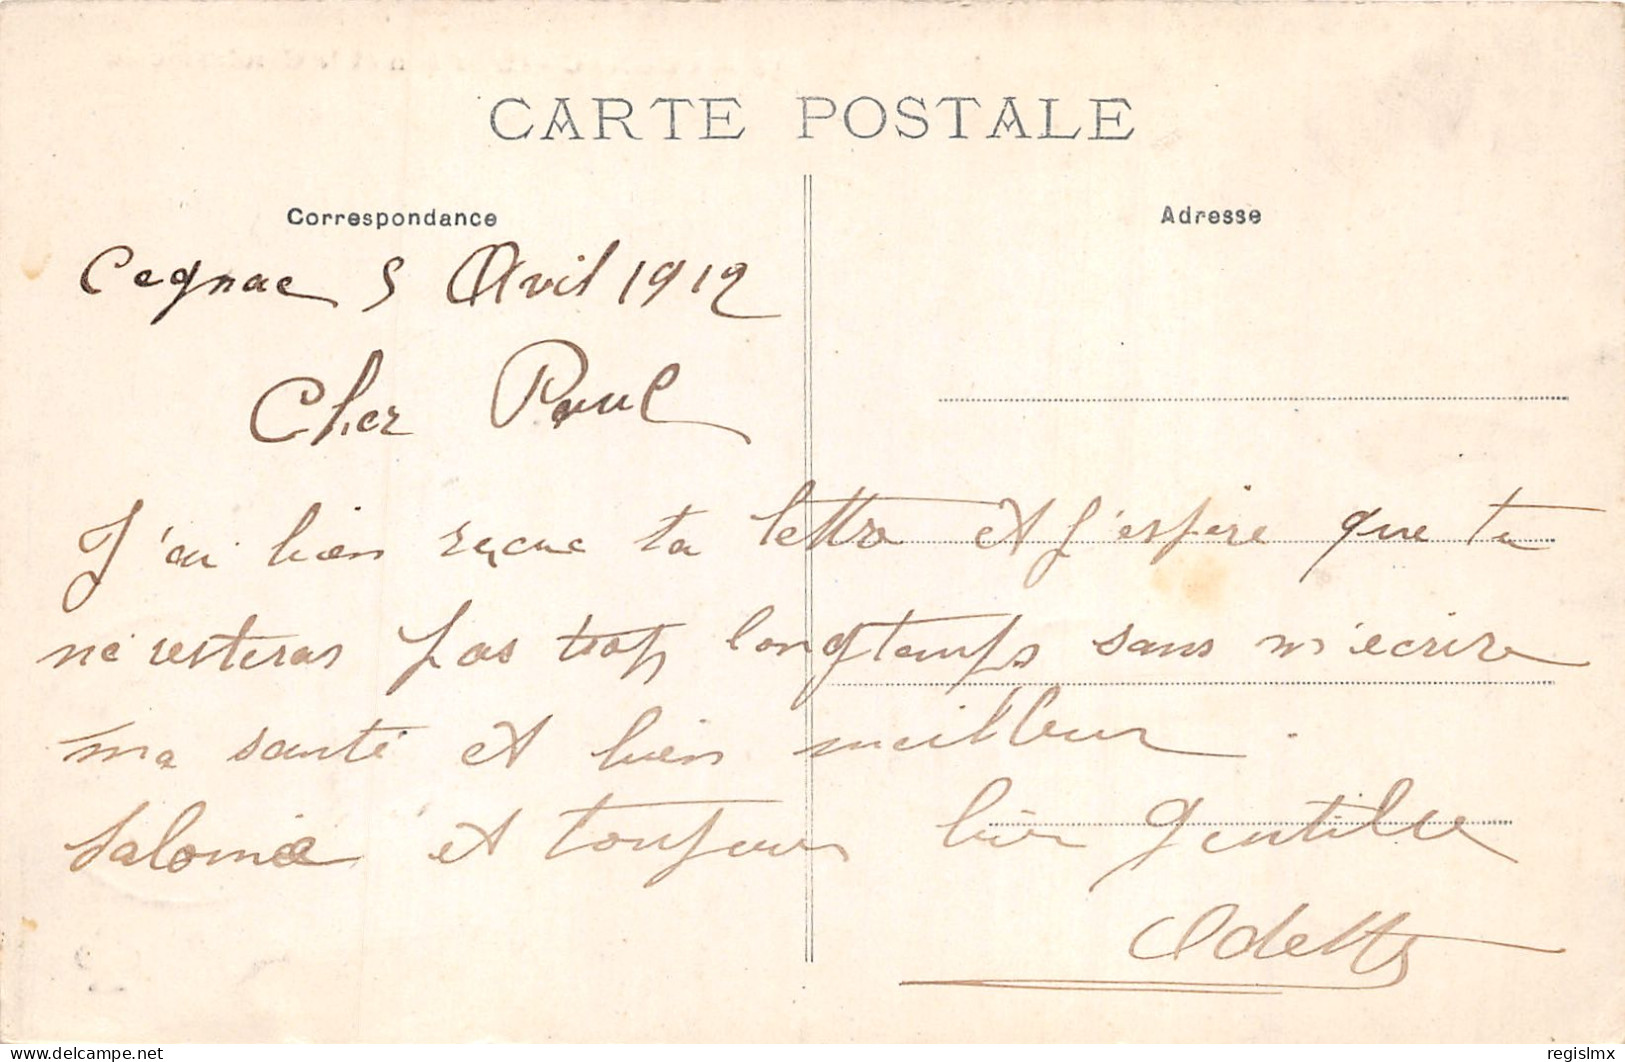 CARTE POSTALE
Correspondance
Adresse
Cognac 5 Avril 1912
Cher Paul
J'ai bien reçue ta lettre et j'espère que tu
ne resteras pas trop longtemps sans m'écrire
ma santé et bien meilleur.
Salomée et toujour bien gentille
Odette
www.delcampe.net
regislmx